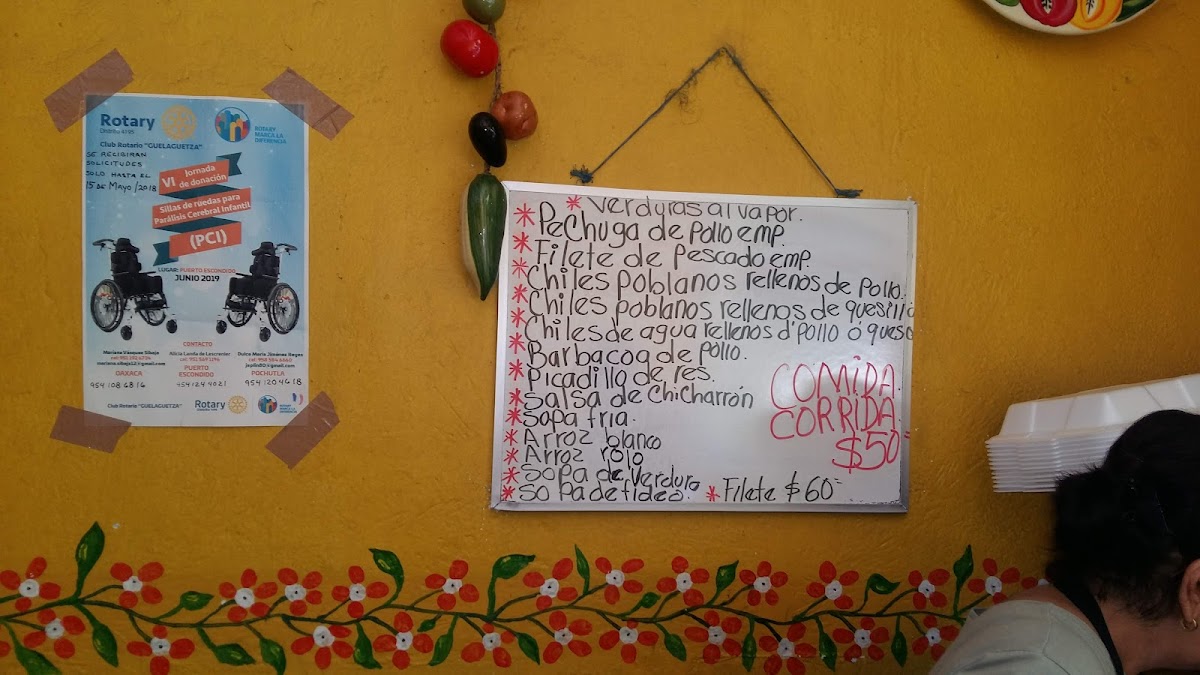 Rotary
Distrito 4195
ROTARY
MARCA LA
DIFERENCIA
Club Rotario "GUELAGUETZA"
SE RECIBIRAN
SOLICITUDES
SOLO HASTA EL
15 DE MAYO/2018
VI Jornada
de donación
Sillas de ruedas para
Parálisis Cerebral Infantil
(PCI)
LUGAR: PUERTO ESCONDIDO
JUNIO 2019
CONTACTO
Mariana Vásquez Sibaja
cel: 951 192 4734
OAXACA
954 108 68 16
Alicia Landa de Lescrenier
cel: 951 569 1296
PUERTO
ESCONDIDO
954 124 4021
Dulce María Jiménez Reyes
cel: 958 584 6660
POCHUTLA
954 120 4618
Club Rotario "GUELAGUETZA"
Rotary
* Verduras al vapor.
* Pechuga de pollo emp.
* Filete de Pescado emp.
* Chiles poblanos rellenos de pollo.
* Chiles poblanos rellenos de quesillo
* Chiles de agua rellenos d'pollo ó queso
* Barbacoa de pollo.
* Picadillo de res.
* Salsa de ChiCharrón
* Sopa fria.
* Arroz blanco
* Arroz rojo
* Sopa de Verdura
* Sopa de fideo.
* Filete $60=
COMiDA
CORRIDA
$50=